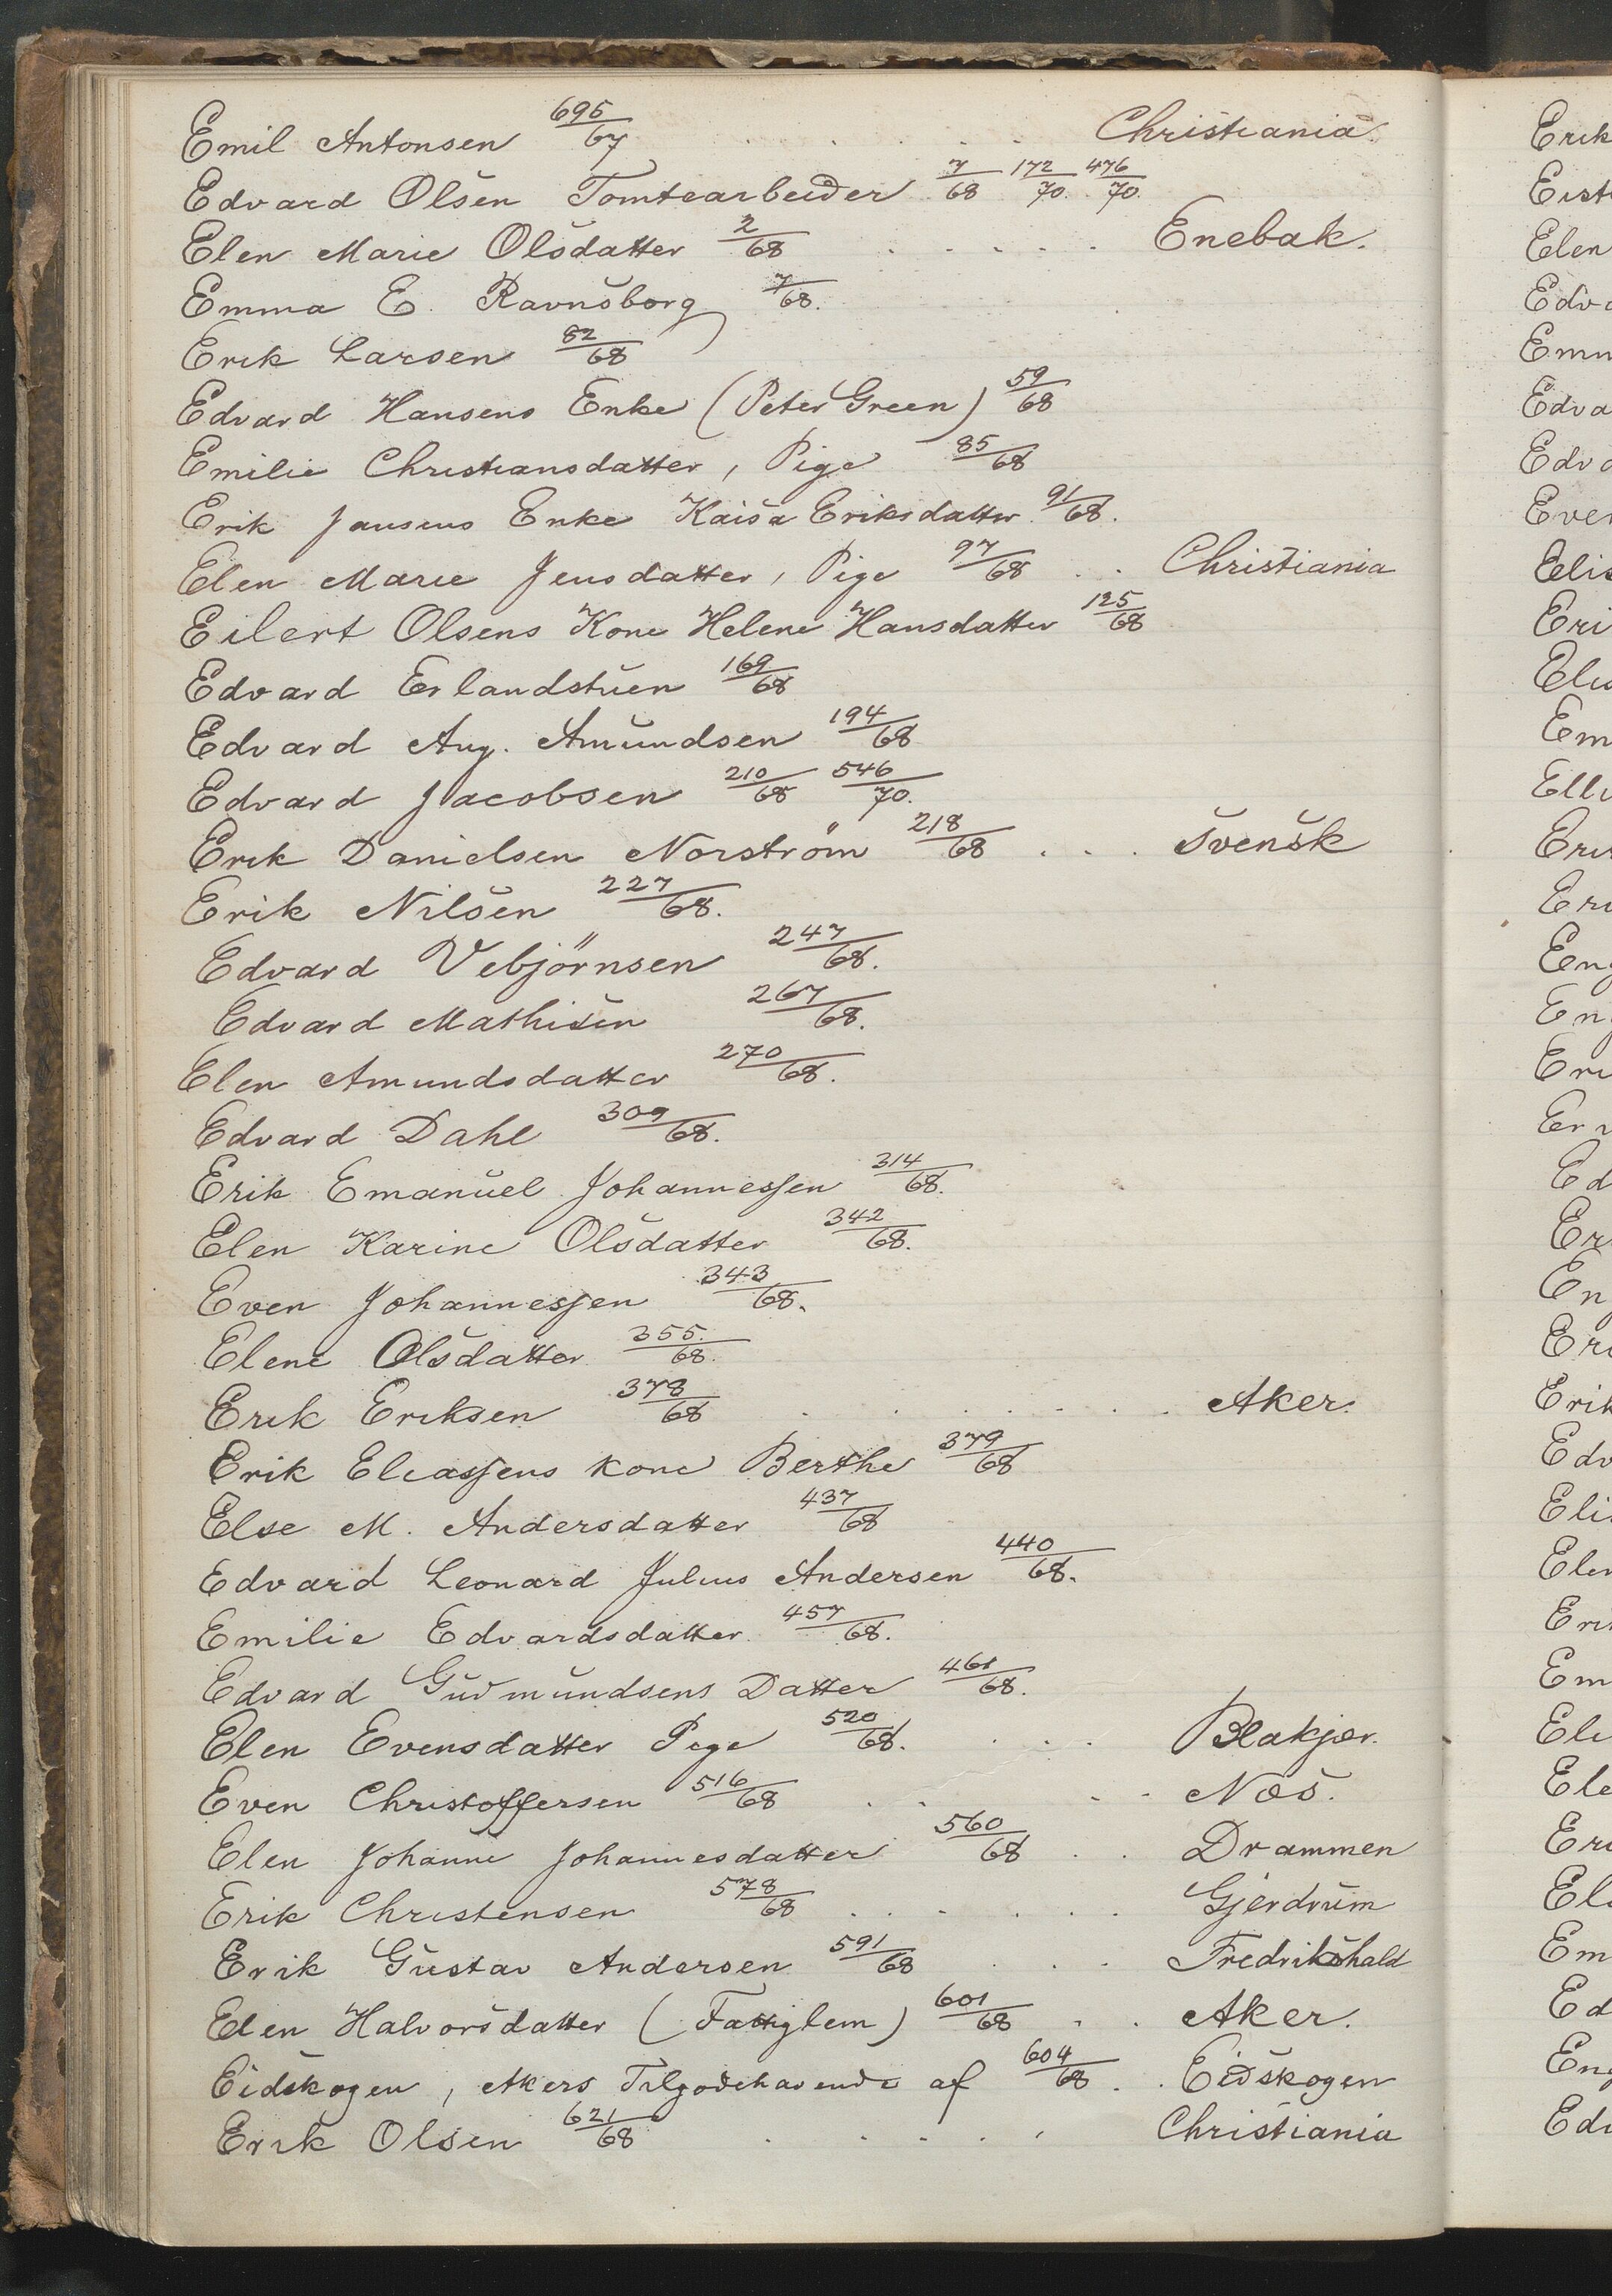 Emil Antonsen 695/67 . . . . . Christiania.
Edvard Olsen Tomtearbeider 7/68 172/70. 476/70.
Elen Marie Olsdatter 2/68 . . . . . Enebak.
Emma E. Ravnsborg 7/68.
Erik Larsen 82/68
Edvard Hansens Enke (Peter Green) 59/68
Emilie Christiansdatter, Pige 85/68
Erik Jansens Enke Kaisa Eriksdatter 91/68.
Elen Marie Jensdatter, Pige 97/68 . . Christiania
Eilert Olsens Kone Helene Hansdatter 125/68
Edvard Erlandstuen 169/68
Edvard Aug. Amundsen 194/68
Edvard Jacobsen 210/68 546/70.
Erik Danielsen Norström 218/68 . . . svensk
Erik Nilsen 227/68.
Edvard Vebjörnsen 247/68.
Edvard Mathisen 267/68.
Elen Amundsdatter 270/68.
Edvard Dahl 309/68.
Erik Emanuel Johannessen 314/68.
Elen Karine Olsdatter 342/68.
Even Johannessen 343/68.
Elene Olsdatter 355/68.
Erik Eriksen 378/68 . . . . . . Aker.
Erik Eliassens kone Berthe 379/68
Else M. Andersdatter 437/68
Edvard Leonard Julius Andersen 440/68.
Emilie Edvardsdatter 457/68.
Edvard Gudmundsens Datter 461/68.
Elen Evensdatter Pige 520/68. . . . Blakjer.
Even Christoffersen 516/68 . . . . Næs.
Elen Johanne Johannesdatter 560/68 . . Drammen
Erik Christensen 578/68 . . . . . . Gjerdrum
Erik Gustav Andersen 591/68 . . . Fredrikshald
Elen Halvorsdatter (Fattiglem) 601/68 . . Aker.
Eidskogen, Akers Tilgodehavende af 604/68 . . Eidskogen
Erik Olsen 621/68 . . . . . Christiania